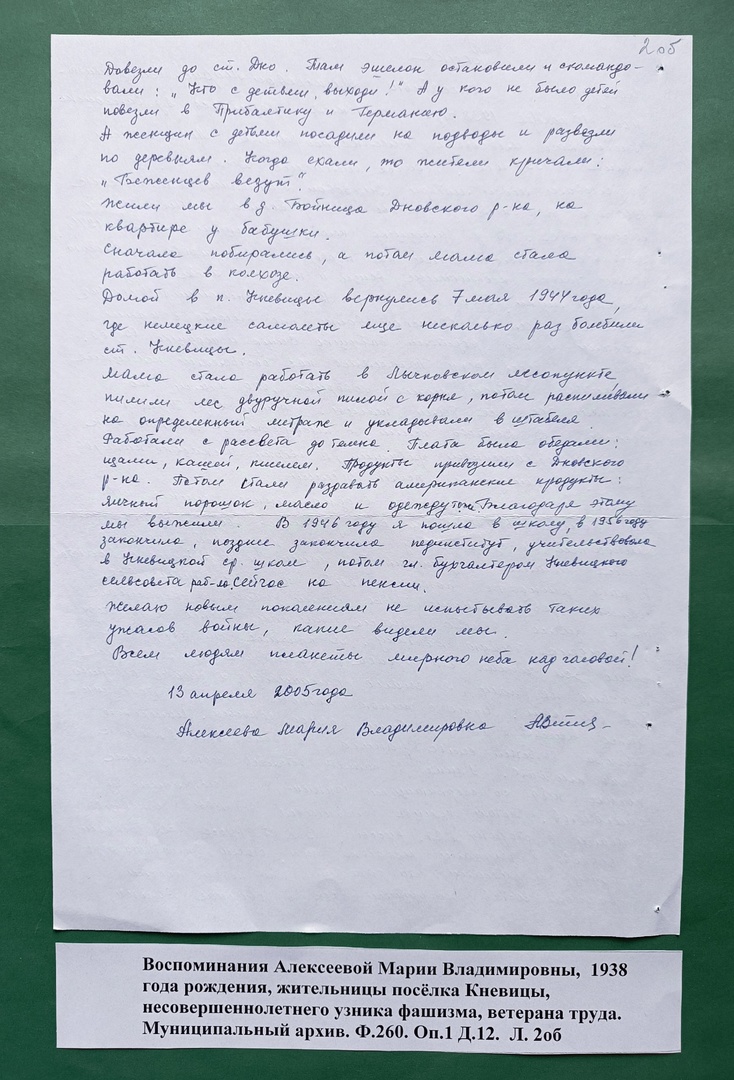 2об
Довезли до ст. Дно. Там эшелон остановили и скомандо-
вали: „Кто с детьми, выходи!" А у кого не было детей
повезли в Прибалтику и Германию.
А женщин с детьми посадили на подводы и развезли
по деревням. Когда ехали, то жители кричали:
„Беженцев везут".
Жили мы в д. Бойница Дновского р-на, на
квартире у бабушки.
Сначала побирались, а потом мама стала
работать в колхозе.
Домой в п. Кневицы вернулись 7 мая 1944 года,
где немецкие самолеты еще несколько раз бомбили
ст. Кневицы.
Мама стала работать в Лычковском лесопункте,
пилили лес двуручной пилой с корня, потом распиливали
на определенный метраж и укладывали в штабеля.
Работали с рассвета до темна. Плата была обедами:
щами, кашей, киселем. Продукты привозили с Дновского
р-на. Потом стали раздавать американские продукты:
яичный порошок, масло и одежду тоже. Благодаря этому
мы выжили. В 1946 году я пошла в школу, в 1956 году
закончила, позднее закончила пединститут, учительствовала
в Кневицкой ср. школе, потом гл. бухгалтером Кневицкого
сельсовета раб-ла. Сейчас на пенсии.
Желаю новым поколениям не испытывать таких
ужасов войны, какие видели мы.
Всем людям планеты мирного неба над головой!
13 апреля 2005 года
Алексеева Мария Владимировна
Воспоминания Алексеевой Марии Владимировны, 1938
года рождения, жительницы посёлка Кневицы,
несовершеннолетнего узника фашизма, ветерана труда.
Муниципальный архив. Ф.260. Оп.1 Д.12. Л. 2об